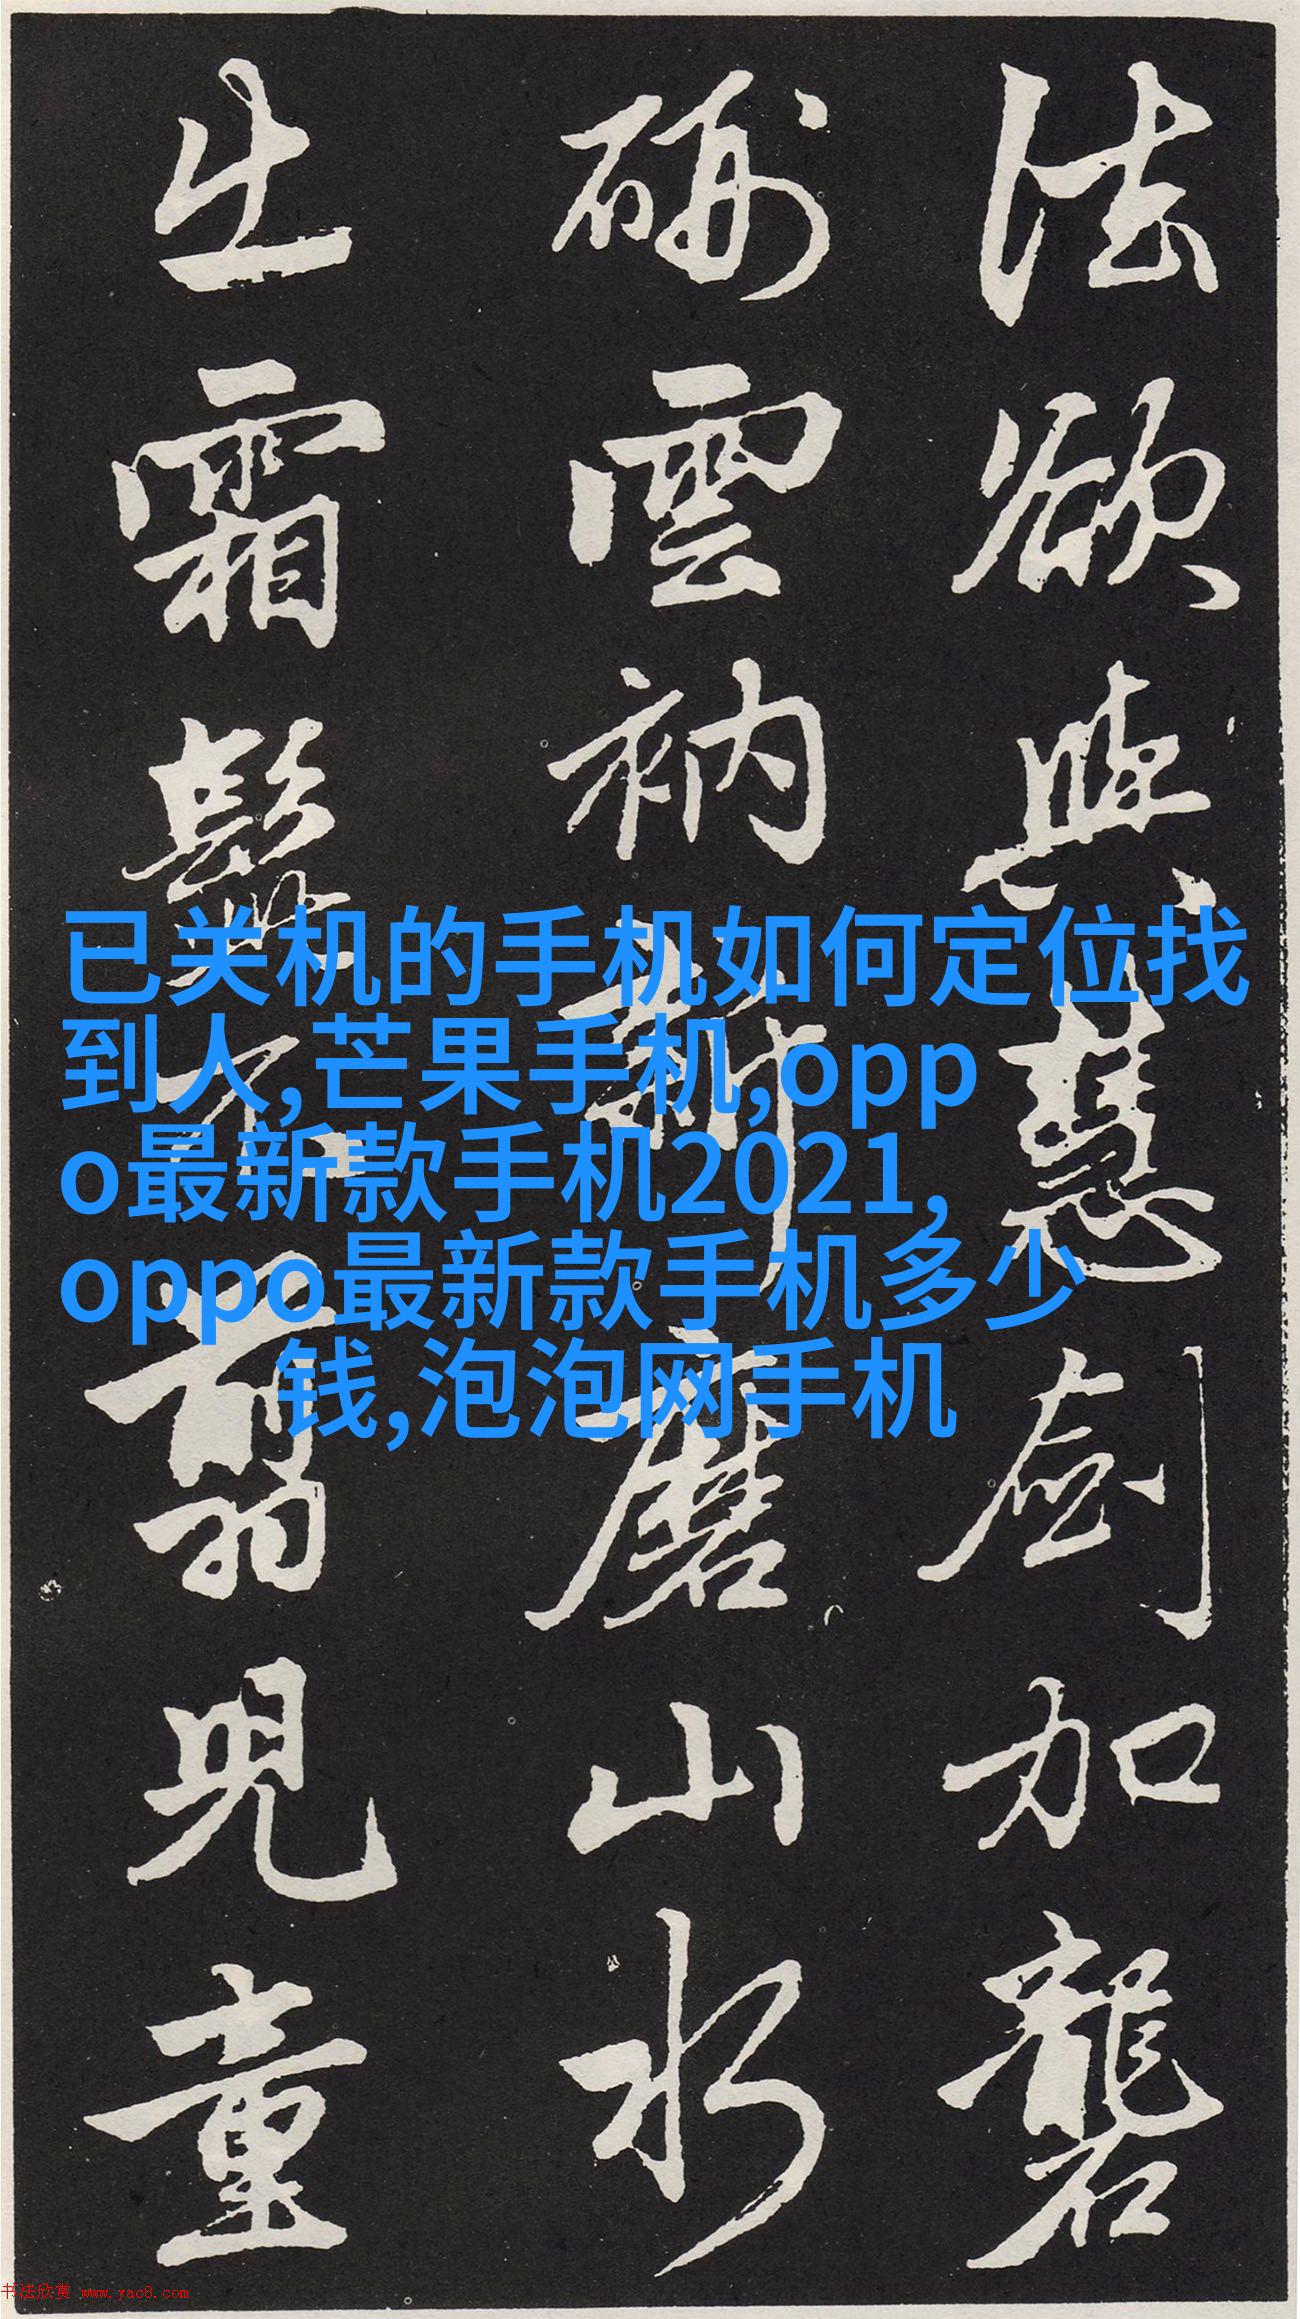 法欲與慧劒加礱
硎雲衲新磨山水
出霜髭不翦兒童
已关机的手机如何定位找
到人,芒果手机,opp
o最新款手机2021,
oppo最新款手机多少
钱,泡泡网手机
书法欣赏 www.yac8.com